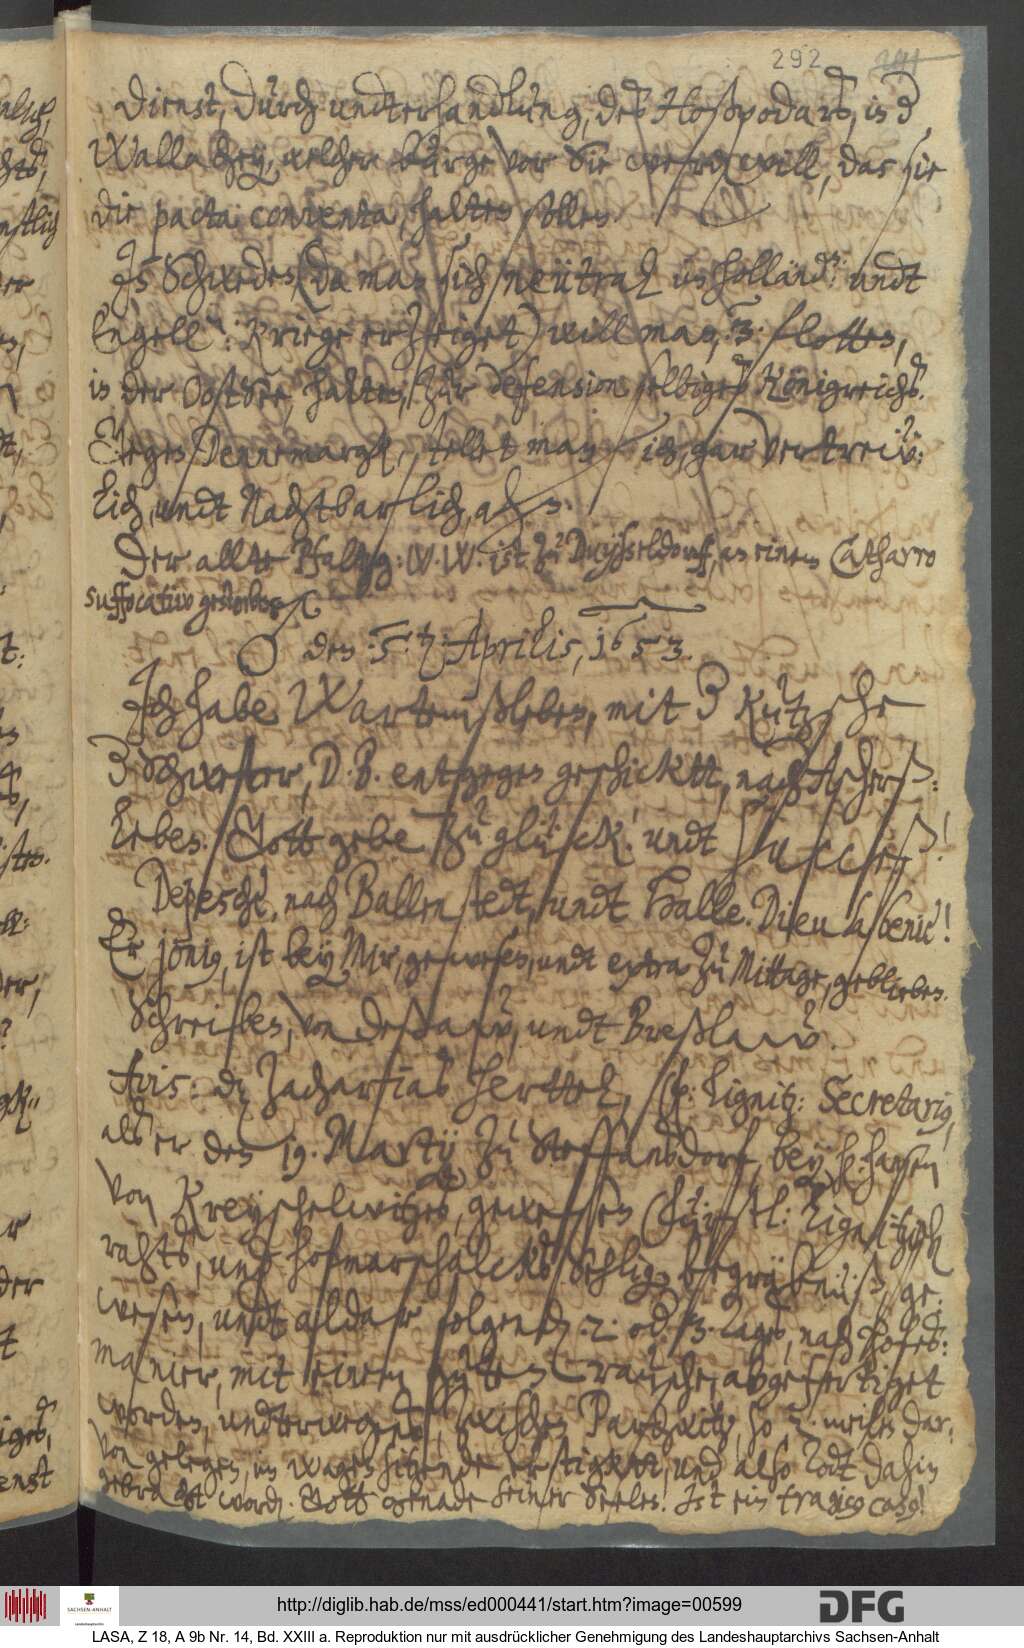 292
Dienst, durch undterhandlung, deß Hoßpodars, in d
Wallachey, welcher bürge vor Sie werden will, das sie
die pacta conventa, halten sollen.
In Schweden (da man sich neütral in holländ: undt
Engell: Kriege erzeiget) will man, 3. flotten,
in der OostSee, halten, zur defension selbiges Königreichs.
Gegen Dennemargk, stellet man sich, gar vertreẅ:
lich, undt Nachtbarlich, an.
Der allte Pfaltzg: W. W. ist zu Düsseldorf, an einem Catharro
suffocativo gestorben.
den 5. Aprilis, 1653.
Ich habe Wartensleben, mit 3 Kutzsche
3 Schwester, D. B. entgegen geschicktt, nach Ascherß:
leben. Gott gebe zu glück! undt Succeß!
Depesche, nach Ballenstedt, undt Halle. Dieu la benie!
Er Jonius, ist bey Mir, gewesen, undt extra zu Mittage, geblieben.
Schreiben, von Deßaw, undt Breßlaw.
Avis: daß Zacharias Herttel, F. Lignitz: Secretarius,
als er den 19. Martij zu Steffansdorf, bey H. Hansen
von Kreyschelwitzes, gewesen Fürstl: Lignitzisch
rahts, und hofmarschalcks Sehlig, begräbnüß ge:
wesen, undt alldar folgende 2. od. 3. Tages, nach hofes:
manier, mit einem guten Trausche, abgefertiget
worden, undterwegens, zwischen Parchwitz, so 2. meilen dar:
von gelegen, im wagen sitzende ersticket, und also Todt dahin
gebracht word. Gott genade seiner Seelen! Ist ein tragicus casus!
http://diglib.hab.de/mss/ed000441/start.htm?image=00599
SACHSEN-ANHALT
DFG
LASA, Z 18, A 9b Nr. 14, Bd. XXIII a. Reproduktion nur mit ausdrücklicher Genehmigung des Landeshauptarchivs Sachsen-Anhalt